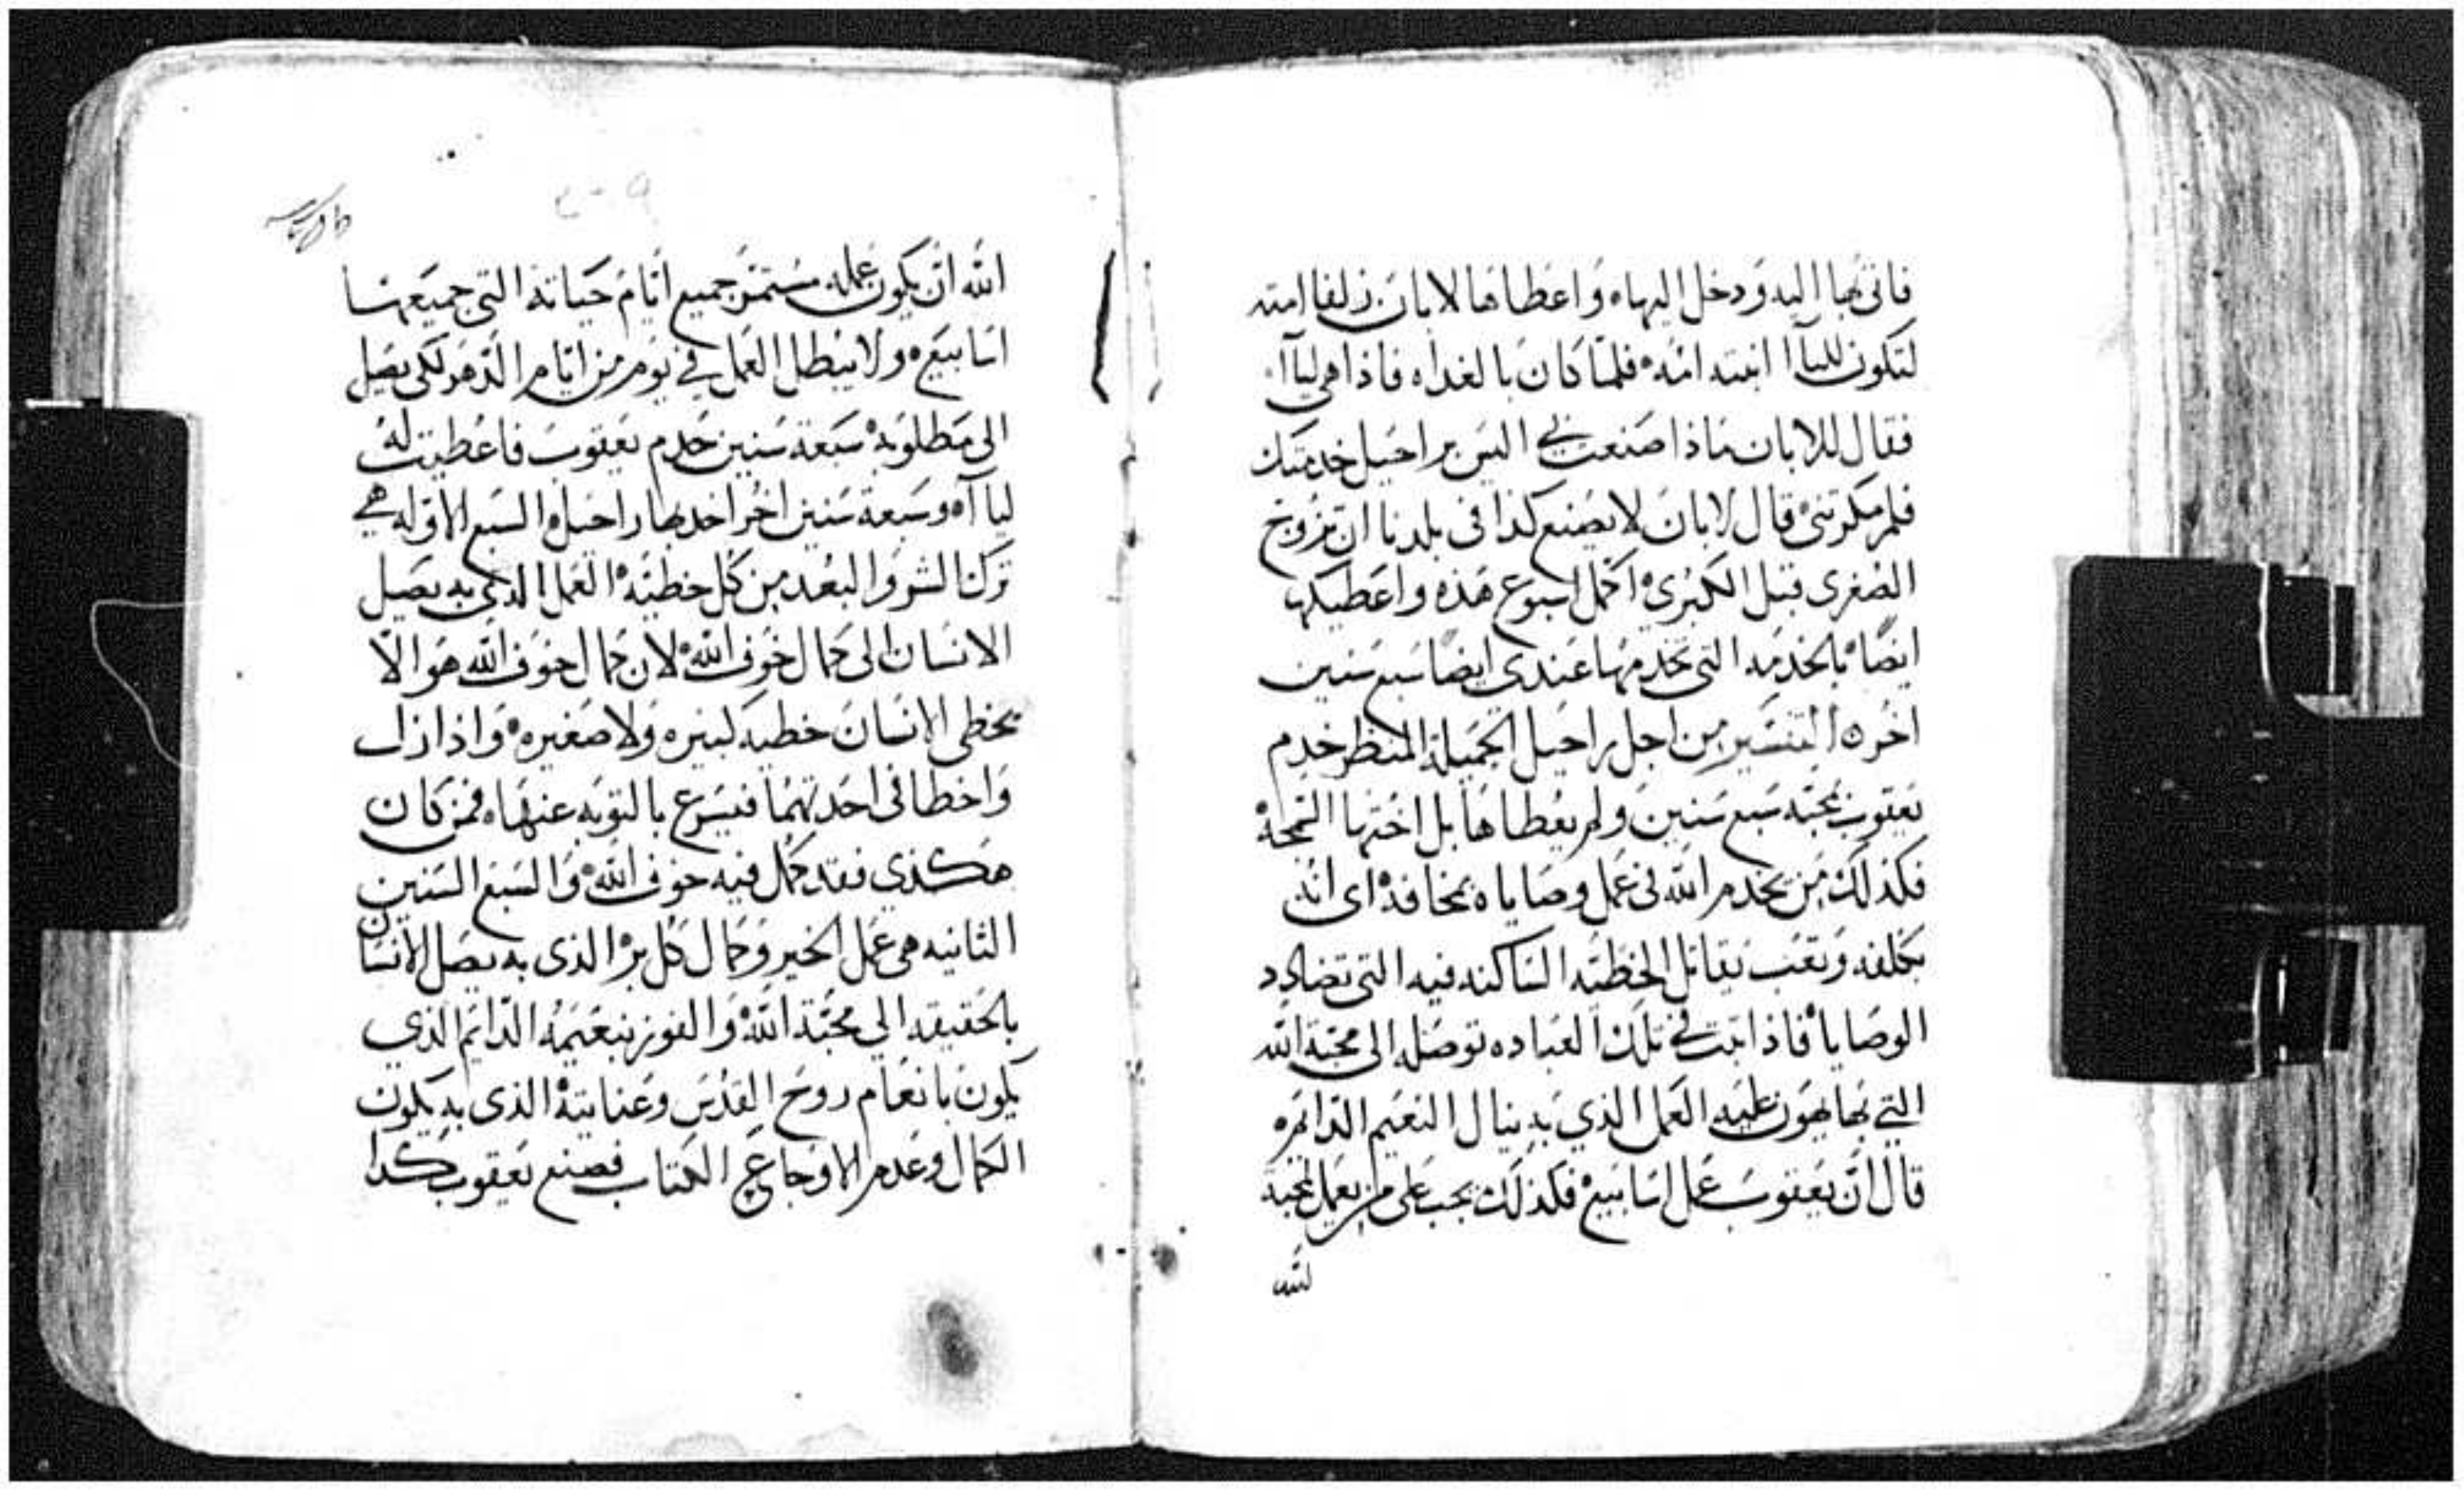 فاتى بها اليه ودخل اليها ه واعطاها لابان زلفا امته
لتكون لليآا ابنته امه ه فلما كان بالغداه فاذا هي ليآا
فقال للابان ماذا صنعت بي اليس براحيل خدمتك
فلم مكرتني ه قال لابان لا يصنع كذا في بلدنا ان تزوج
الصغرى قبل الكبرى ه اكمل اسبوع هذه واعطيكها
ايضًا ه بالخدمه التي تخدمها عندي ايضا سبع سنين
اخر ه التفسير من اجل راحيل الجميلة المنظر خدم
يعقوب بمحبه سبع سنين ولم يعطاها بل اختها السمجة
فكذلك من يخدم الله في عمل وصاياه بمخافة اي انه
بكلفه وتعب يقاتل الخطيه الساكنه فيه التي تضادد
الوصايا ه فاذا ثبت في تلك العباده توصله الى محبة الله
التي بها يهون عليه العمل الذي به ينال النعيم الدايم ه
قال ان يعقوب عمل اسابيع ه فكذلك يجب على من يعمل لمحبة
لله
الله ان يكون عمله مستمر جميع ايام حياته التي جميعها
اسابيع ه ولا يبطل العمل في يوم من ايام الدهر لكي يصل
الى مطلوبه ه سبعة سنين خدم يعقوب فاعطيت له
ليا آه وسبعة سنين اخر اخد بها راحيل ه السبع الاوله هي
ترك الشر والبعد من كل خطيه ه العمل الذي به يصل
الانسان الى كمال خوف الله ه لان كمال خوف الله هو الّا
يخطي الانسان خطيه كبيره ولا صغيره ه واذا زل
واخطا في احدتهما فيسرع بالتوبه عنها ه فمن كان
هكذي فقد كمل فيه خوف الله ه والسبع السنين
الثانيه هي عمل الخير وكمال كل بر الذي به يصل الانسان
بالحقيقه الي محبة الله ه والفوز بنعيمه الدايم الذي
يكون بانعام روح القدس وعنايته الذي به يكون
الكمال وعدم الاوجاع ع الكتاب فصنع يعقوب كذا